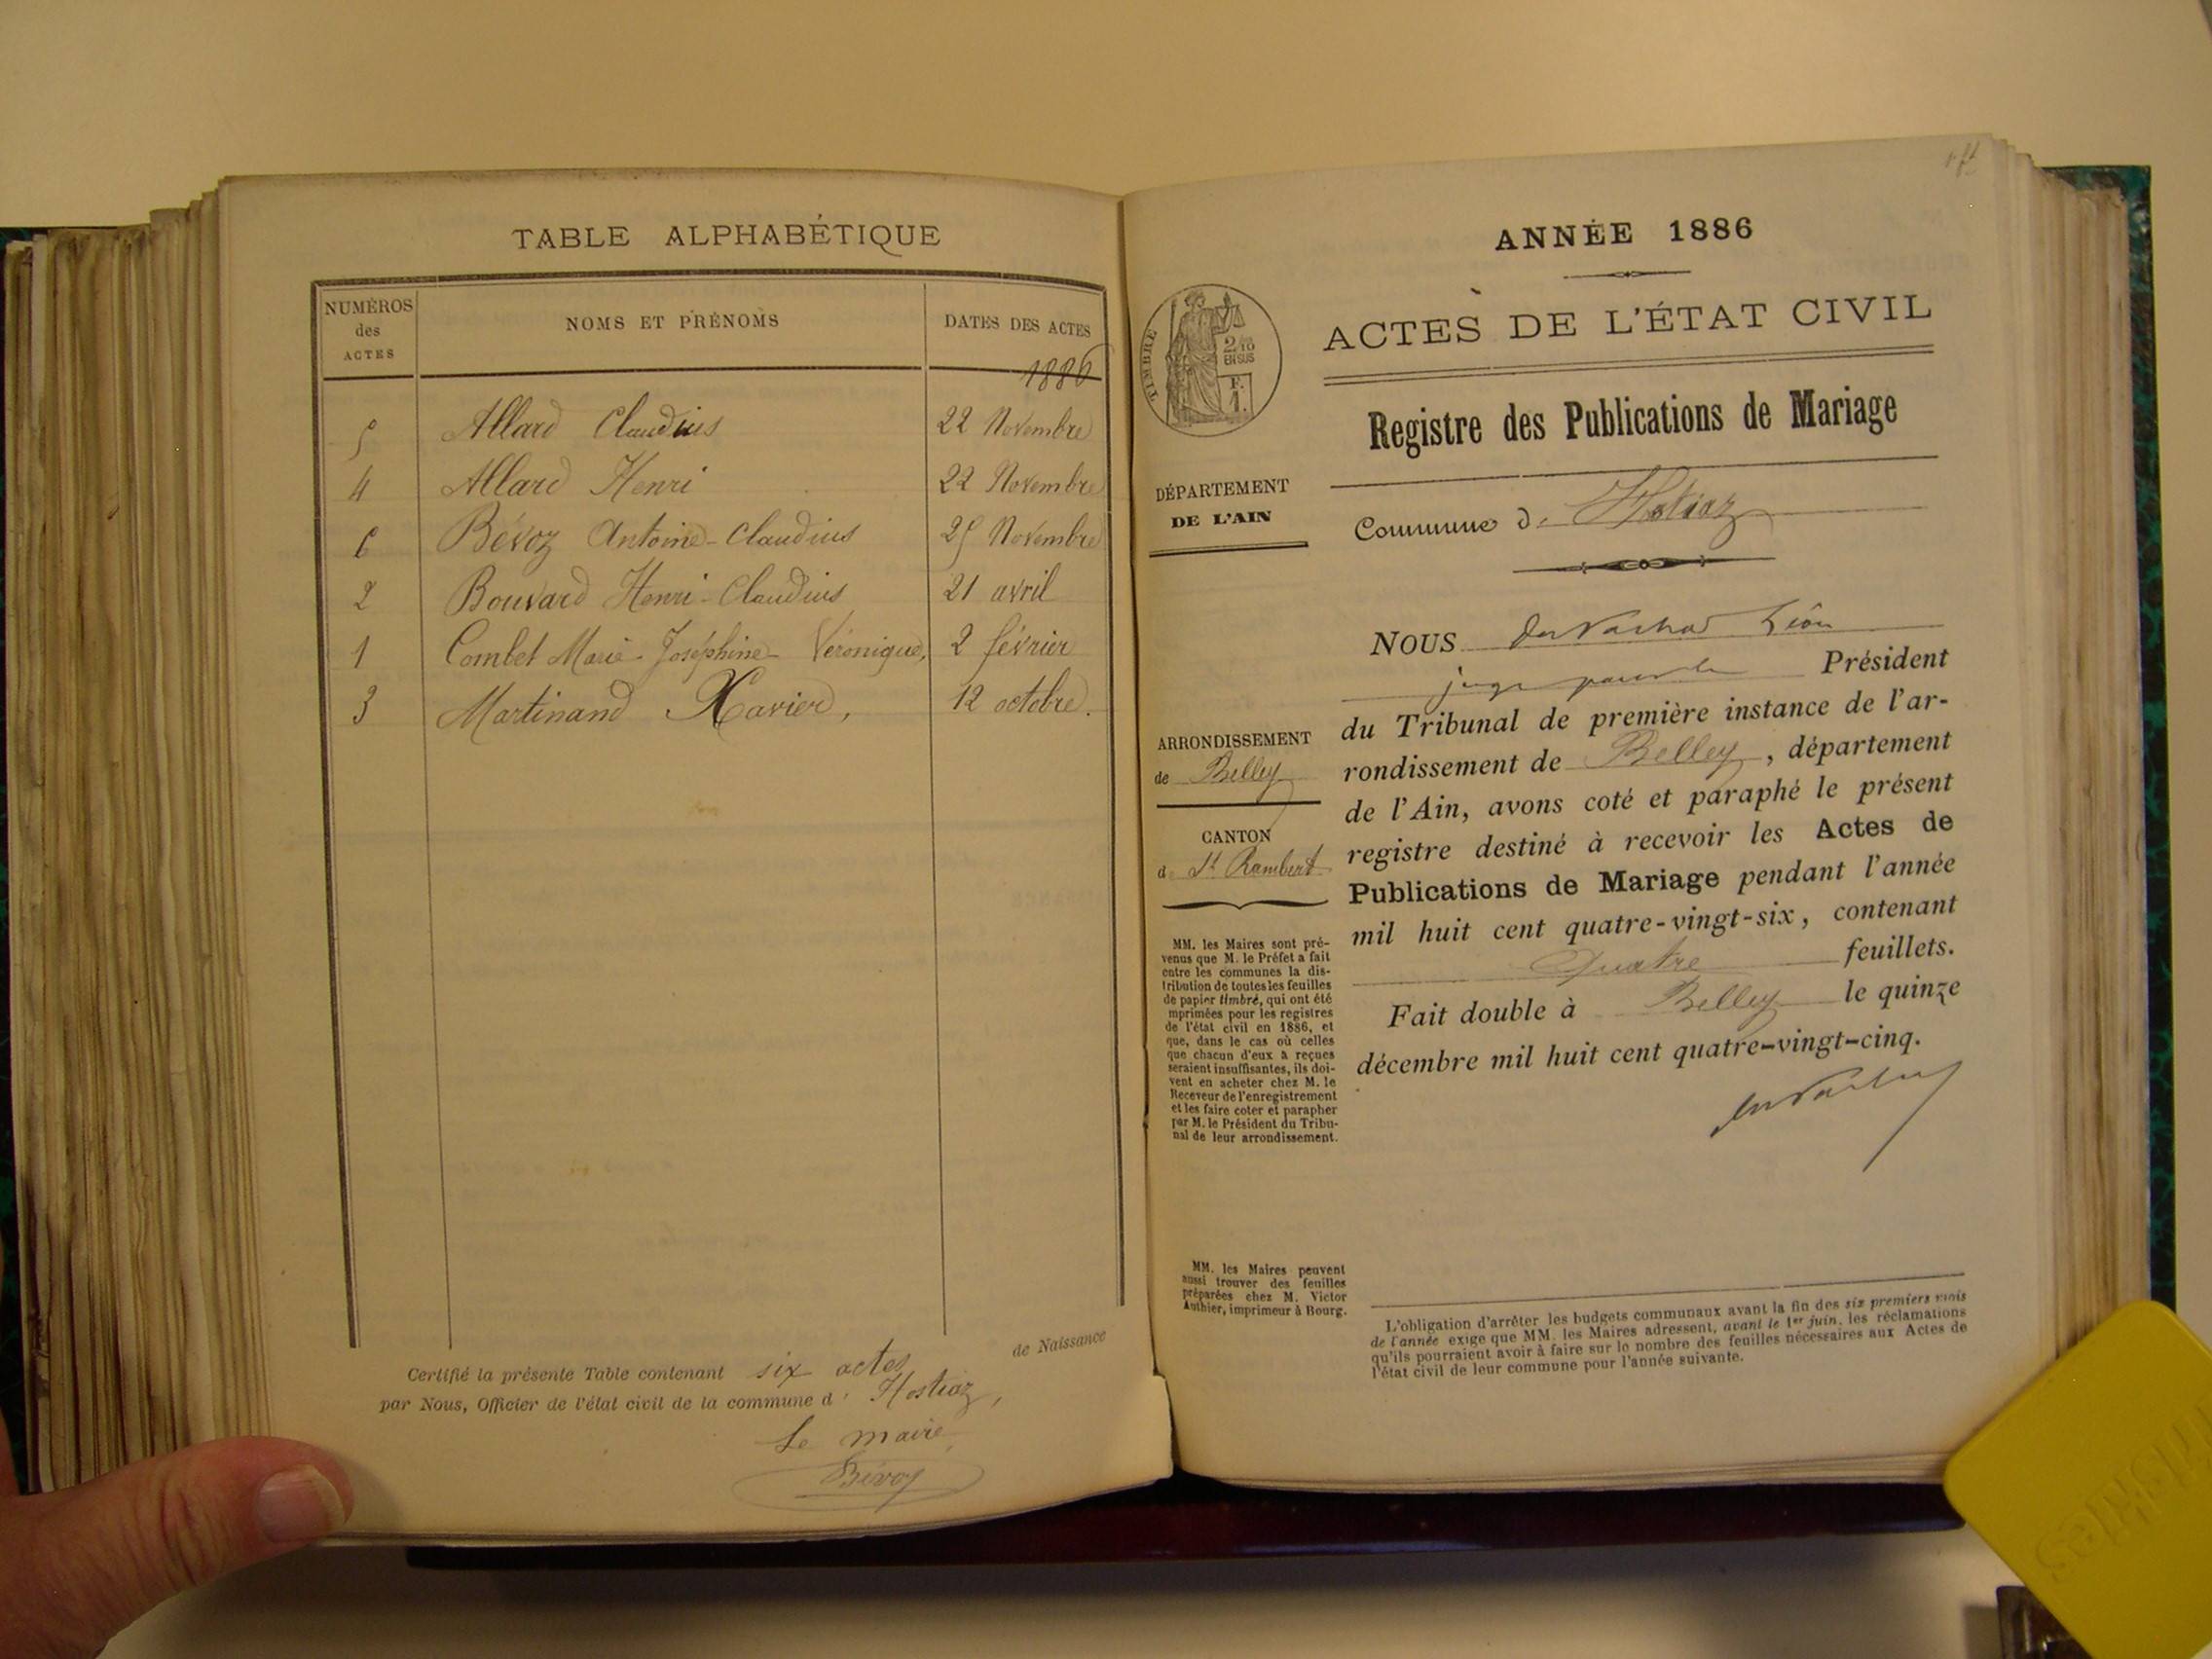 TABLE ALPHABÉTIQUE
NUMÉROS
des
ACTES
NOMS ET PRÉNOMS
DATES DES ACTES
1886
5 Allard Claudius 22 Novembre
4 Allard Henri 22 Novembre
6 Bévoz Antoine-Claudius 25 Novembre
2 Bouvard Henri-Claudius 21 avril
1 Combet Marie-Joséphine-Véronique, 2 février
3 Martinand Xavier, 12 octobre.
de Naissance
Certifié la présente Table contenant six actes
par Nous, Officier de l'état civil de la commune d' Hostiaz,
Le maire
Bévoz
ANNÉE 1886
ACTES DE L'ÉTAT CIVIL
Registre des Publications de Mariage
Commune d' Hostiaz
TIMBRE
2/10
EN SUS
F.
1.
DÉPARTEMENT
DE L'AIN
ARRONDISSEMENT
de Belley
CANTON
de St Rambert
MM. les Maires sont pré-
venus que M. le Préfet a fait
entre les communes la dis-
tribution de toutes les feuilles
de papier timbré, qui ont été
mprimées pour les registres
de l'état civil en 1886, et
que, dans le cas où celles
que chacun d'eux à reçues
seraient insuffisantes, ils doi-
vent en acheter chez M. le
Receveur de l'enregistrement
et les faire coter et parapher
par M. le Président du Tribu-
nal de leur arrondissement.
MM. les Maires peuvent
aussi trouver des feuilles
préparées chez M. Victor
Authier, imprimeur à Bourg.
NOUS Léon
juge Président
du Tribunal de première instance de l'ar-
rondissement de Belley, département
de l'Ain, avons coté et paraphé le présent
registre destiné à recevoir les Actes de
Publications de Mariage pendant l'année
mil huit cent quatre-vingt-six, contenant
Quatre feuillets.
Fait double à Belley le quinze
décembre mil huit cent quatre-vingt-cinq.
L'obligation d'arrêter les budgets communaux avant la fin des six premiers mois
de l'année exige que MM. les Maires adressent, avant le 1er juin, les réclamations
qu'ils pourraient avoir à faire sur le nombre des feuilles nécessaires aux Actes de
l'état civil de leur commune pour l'année suivante.